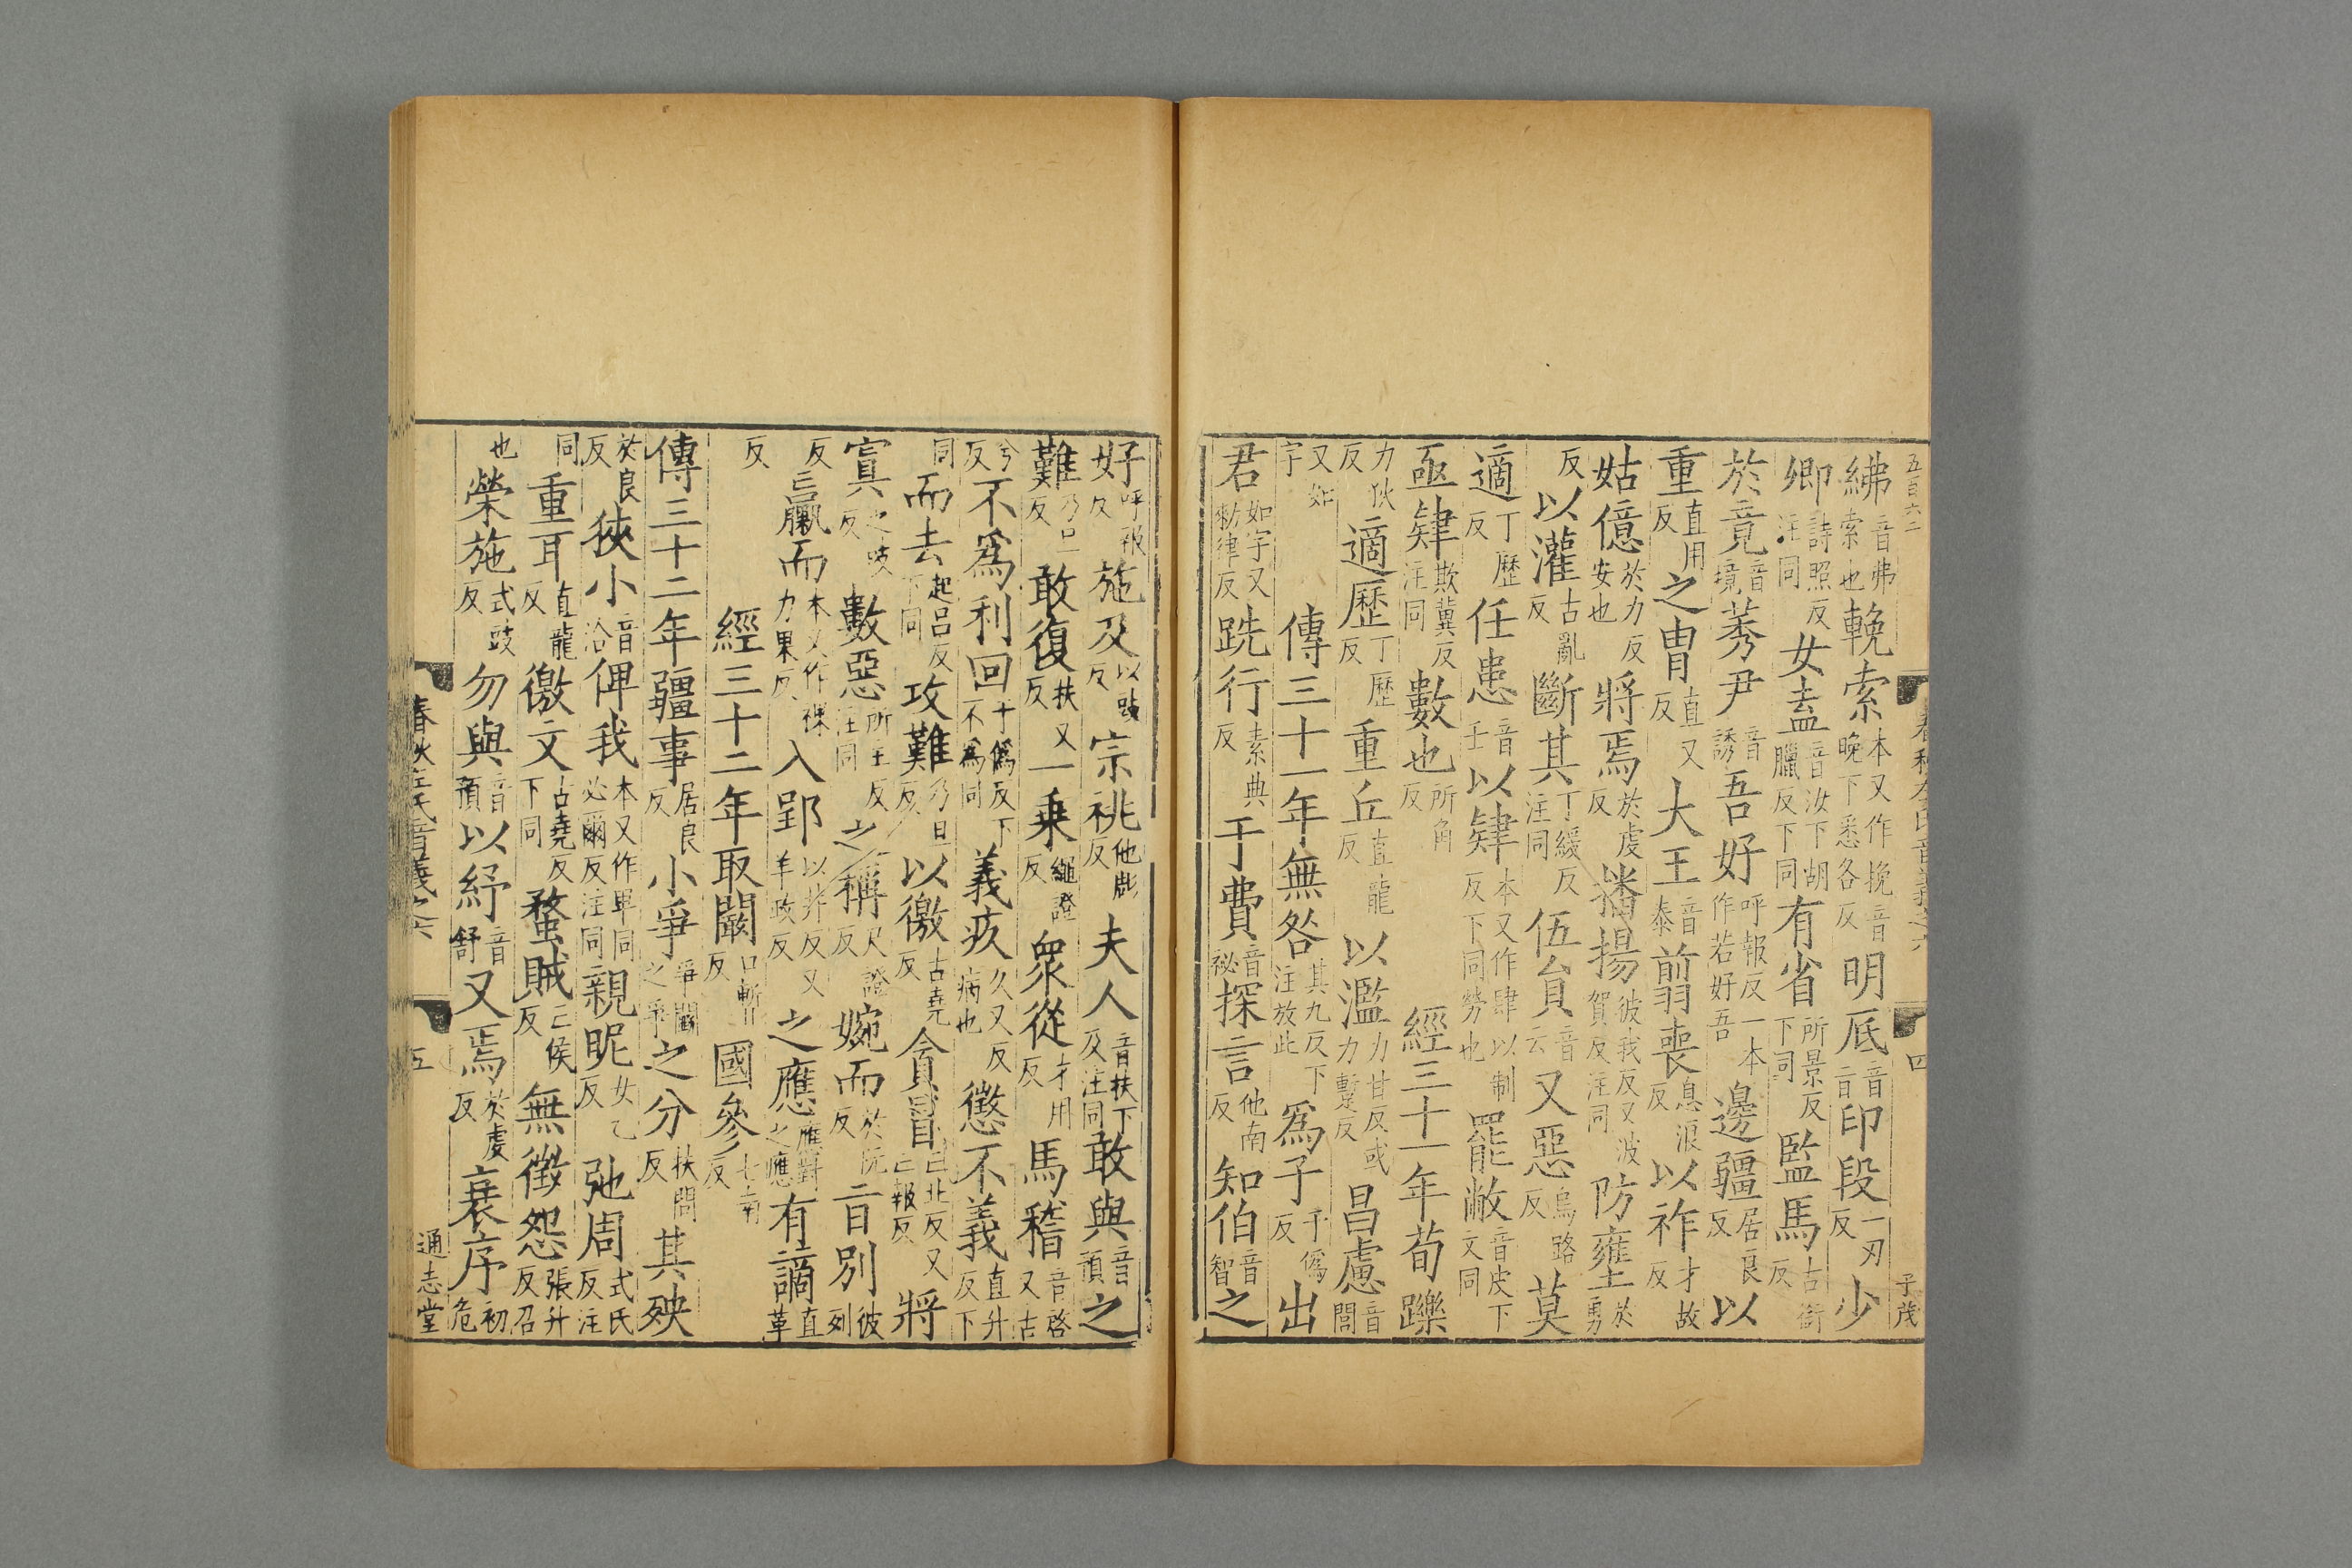 五百六二
春秋左氏音義之六 四 子茂
紼音弗索也輓索本又作挽音晚下悉各反明厎音旨印段一刃反少
卿詩照反注同女盍音汝下胡臘反下同有省所景反下同監馬古銜反
於竟音境莠尹音誘吾好呼報反一本作若好吾邊疆居良反以
重直用反之胄直又反大王音泰翦喪息浪反以祚才故反
姑億於力反安也將焉於虔反播揚彼我反又波賀反注同防壅於勇
反以灌古亂反斷其丁緩反注同伍員音云又惡烏路反莫
適丁歷反任患音壬以肄本又作肆以制反下同勞也罷敝音皮下文同
亟肄欺冀反注同數也所角反 經三十一年荀躒
力狄反適歷丁歷反重丘直龍反以濫力甘反或力蹔反昌慮音閭
又如字 傳三十一年無咎其九反下注放此為子于偽反出
君如字又勑律反跣行素典反于費音祕探言他南反知伯音智之
好呼報反施及以豉反宗祧他彫反夫人音扶下及注同敢與音預之
難乃旦反敢復扶又反一乗繩證反眾從才用反馬稽音啓又古
兮反不為利回于偽反下不為同義疚久又反病也懲不義直升反下
同而去起呂反下同攻難乃旦反以徼古堯反貪冒亡北反又亡報反將
寘之豉反數惡所主反注同之稱尺證反婉而於阮反旨別彼列
反臝而本又作裸力果反入郢以井反又羊政反之應應對之應有謫直革
反 經三十二年取闞口暫反國參七南反
傳三十二年疆事居良反小爭爭鬭之爭之分扶問反其殃
於良反狹小音洽俾我本又作卑同必爾反注同親昵女乙反弛周式氏反注
同重耳直龍反徼文古堯反下同蝥賊亡侯反無徵怨張升反召
也榮施式豉反勿與音預以紓音舒又焉於虔反衰序初危
春秋左氏音義之六 五 通志堂